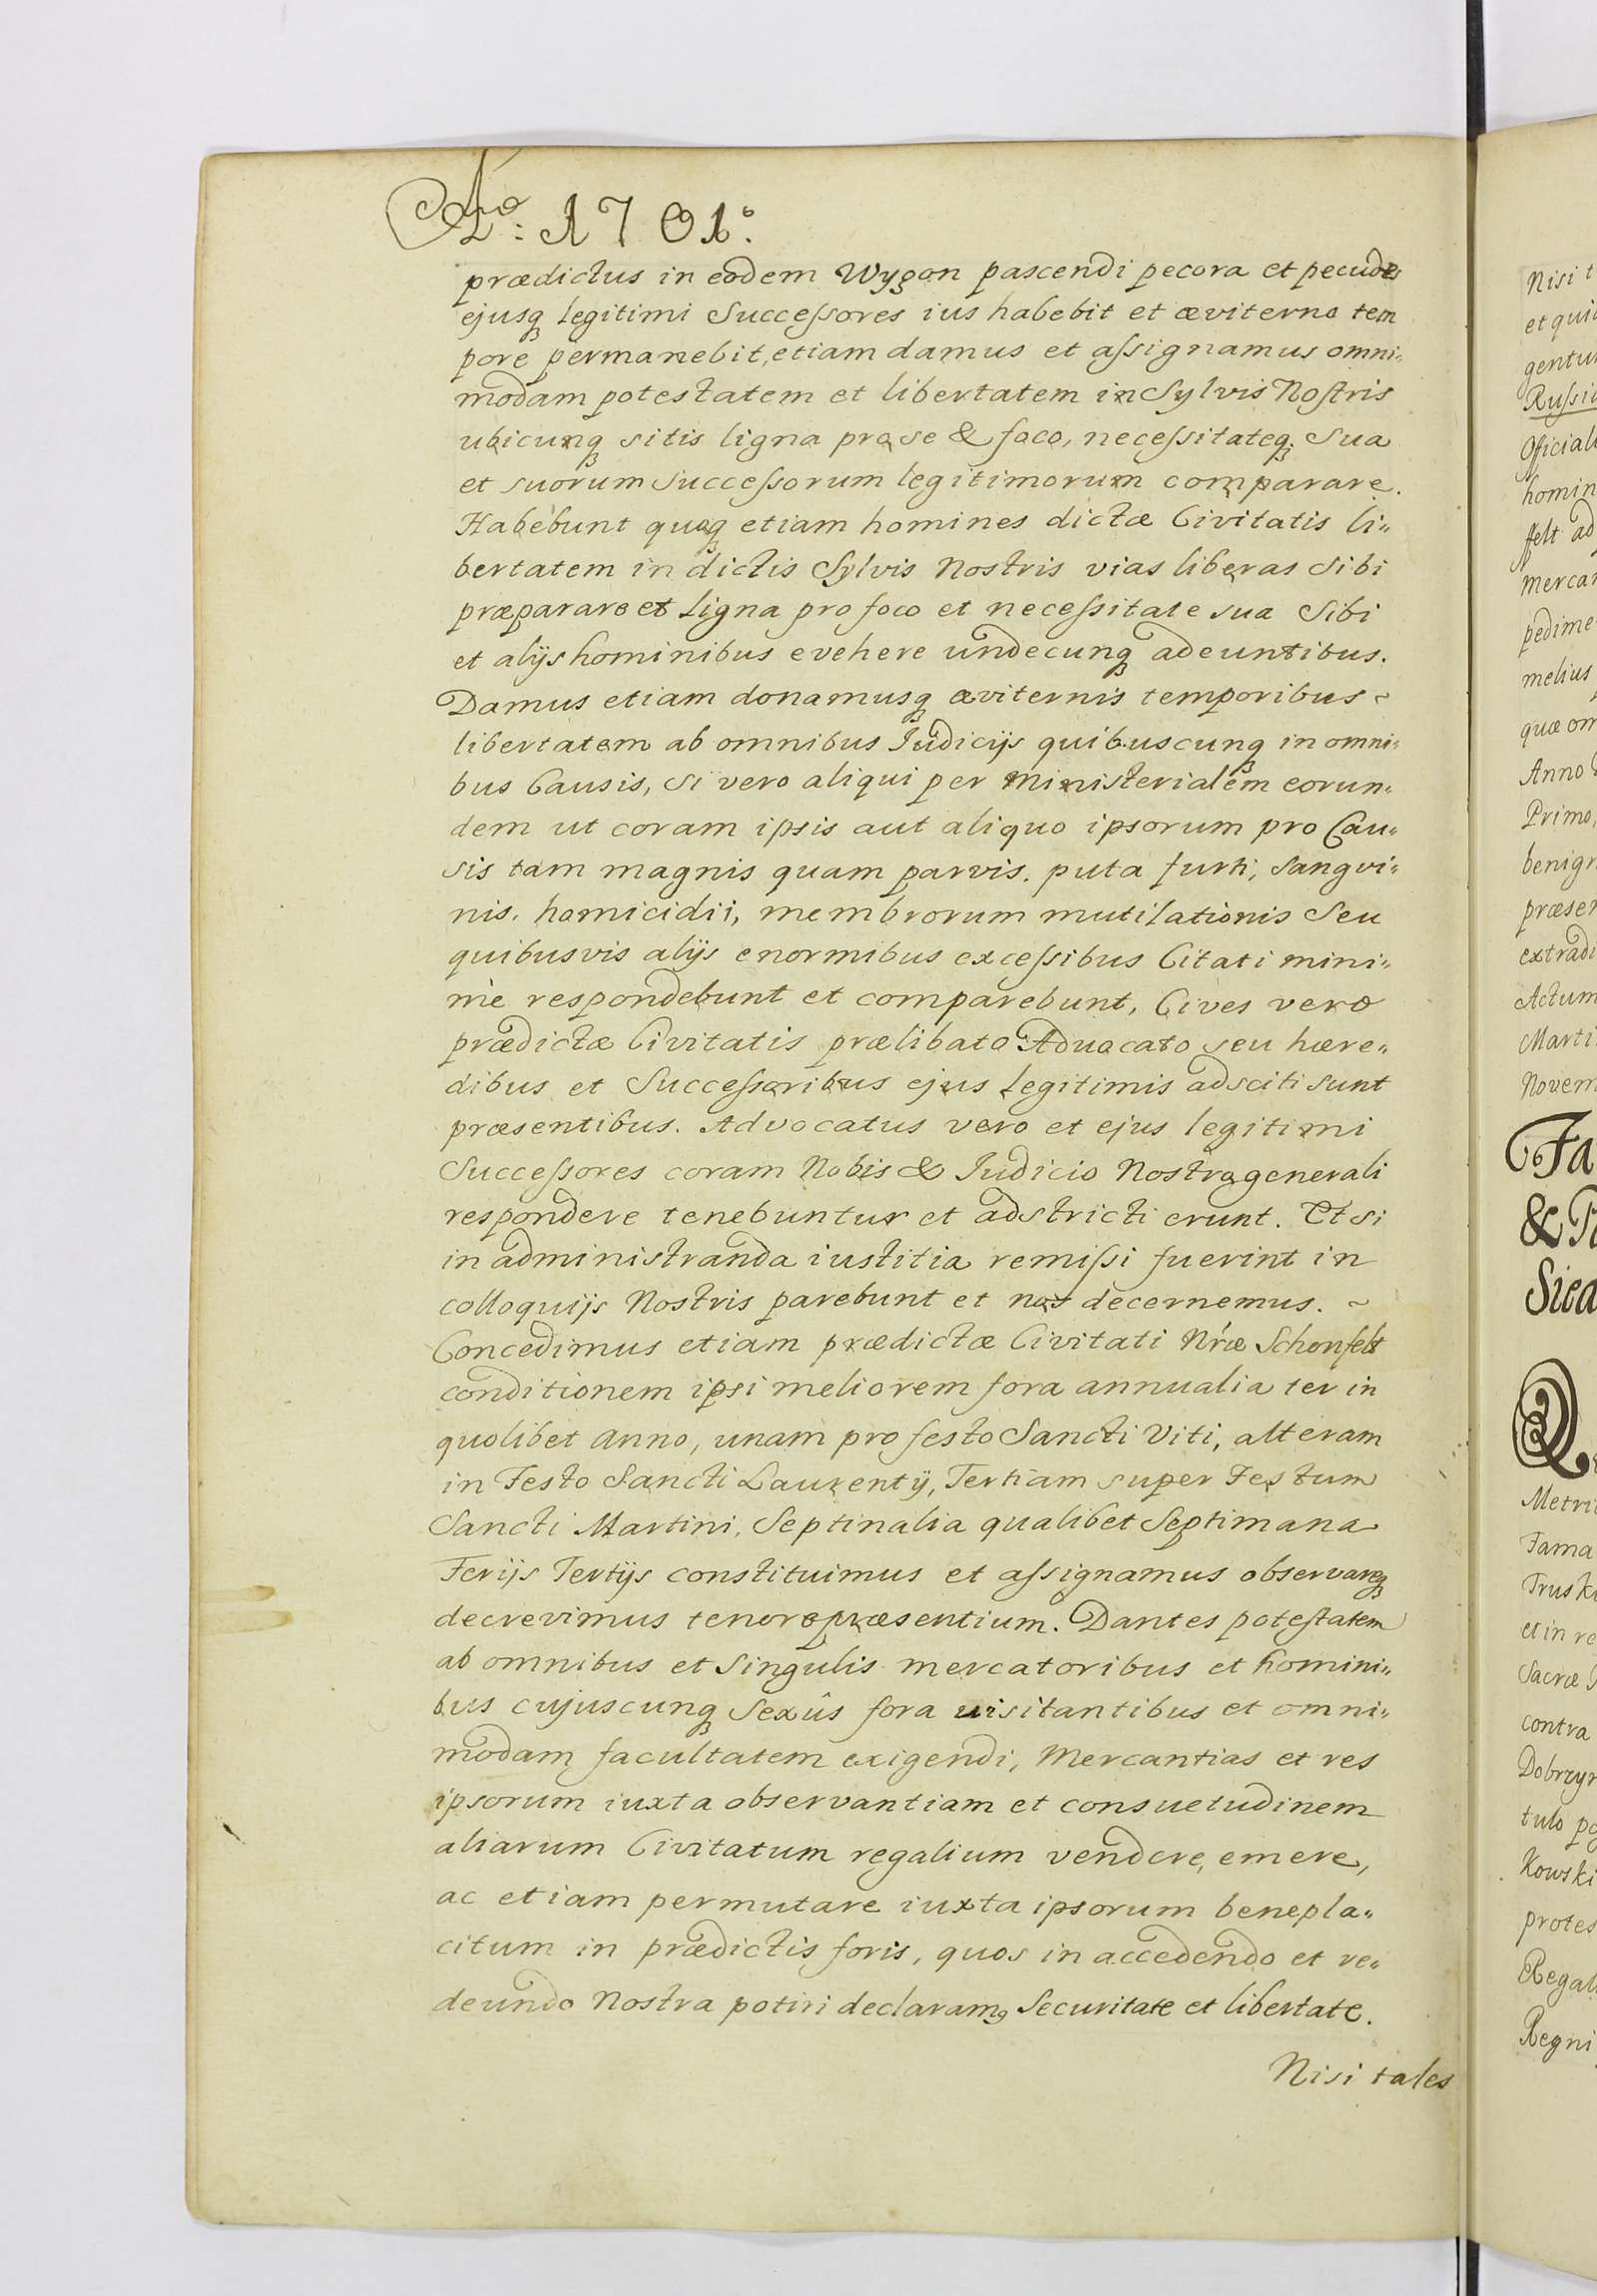 Aº: 1701º.
prædictus in eodem Wygon pascendi pecora et pecudes
ejusq̃ legitimi Successores ius habebit et æviterno tem
pore permanebit, etiam damus et assignamus omni=
modam potestatem et libertatem in Sylvis Nostris
ubicunq̃ sitis ligna pro se & foco, necessitateq̃ Sua
et suorum Successorum legitimorum comparare.
Habebunt quoq̃ etiam homines dictæ Civitatis li=
bertatem in dictis Sylvis Nostris vias liberas Sibi
præparare et Ligna pro foco et necessitate sua Sibi
et alijs hominibus evehere undecunq̃ adeuntibus.
Damus etiam donamusq̃ æviternis temporibus ~
libertatem ab omnibus Judicijs quibuscunq̃ in omni=
bus Causis, Si vero aliqui per Ministerialem eorun=
dem ut coram ipsis aut aliquo ipsorum pro Cau=
sis tam magnis quam parvis. puta furti, Sangvi=
nis, homicidii, membrorum mutilationis Seu
quibusvis alijs enormibus excessibus Citati mini=
mè respondebunt et comparebunt, Cives vero
prædictæ Civitatis prælibato Advocato seu hære=
dibus et Successoribus ejus Legitimis adsciti sunt
præsentibus. Advocatus vero et ejus legitimi
Successores coram Nobis & Judicio Nostro generali
respondere tenebuntur et adstricti erunt. Et si
in administranda iustitia remissi fuerint in
colloquijs Nostris parebunt et nos decernemus. ~
Concedimus etiam prædictæ Civitati Nræ Schonfelt
conditionem ipsi meliorem fora annualia ter in
quolibet Anno, unam pro festo Sancti Viti, alteram
in Festo Sancti Laurentÿ, Tertiam super Festum
Sancti Martini, Septinalia qualibet Septimana
Ferijs Tertijs constituimus et assignamus observareq̃
decrevimus tenore præsentium. Dantes potestatem
ab omnibus et Singulis mercatoribus et homini=
bus cujuscunq̃ Sexûs fora visitantibus et omni=
modam facultatem exigendi, Mercantias et res
ipsorum iuxta observantiam et consuetudinem
aliarum Civitatum regalium vendere, emere,
ac etiam permutare iuxta ipsorum benepla=
citum in prædictis foris, quos in accedendo et re=
deundo Nostra potiri declaramꝰ Securitate et libertate.
Nisi tales
Nisi t
et qui
gentu
Russi
Official
homin
felt ad
merca
pedime
melius
quæ om
Anno
Primo,
benign
præsen
extradi
Actum
Marti
Novem
Fa
&
Sica
Metri
Fama
Trusk
et in re
Sacræ
contra
Dobrzyn
tulo po
Kowski
protes
Regal
Regni